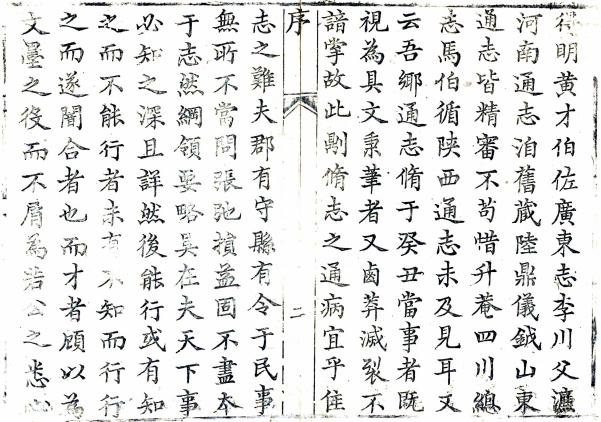 得明黄才伯佐廣東志李川父濂
河南通志洎舊藏陸鼎儀釴山東
通志皆精審不苟惜升菴四川總
志馬伯循陝西通志未及見耳又
云吾鄉通志脩于癸丑當事者旣
視為具文秉筆者又鹵莽滅裂不
諳掌故此則脩志之通病宜乎佳
序 二
志之難夫郡有守縣有令于民事
無所不當問張弛損益固不盡本
于志然綱領要略具在夫天下事
必知之深且詳然後能行或有知
之而不能行者未有不知而行行
之而遂闇合者也而才者顧以為
文墨之役而不屑為若公之悉心